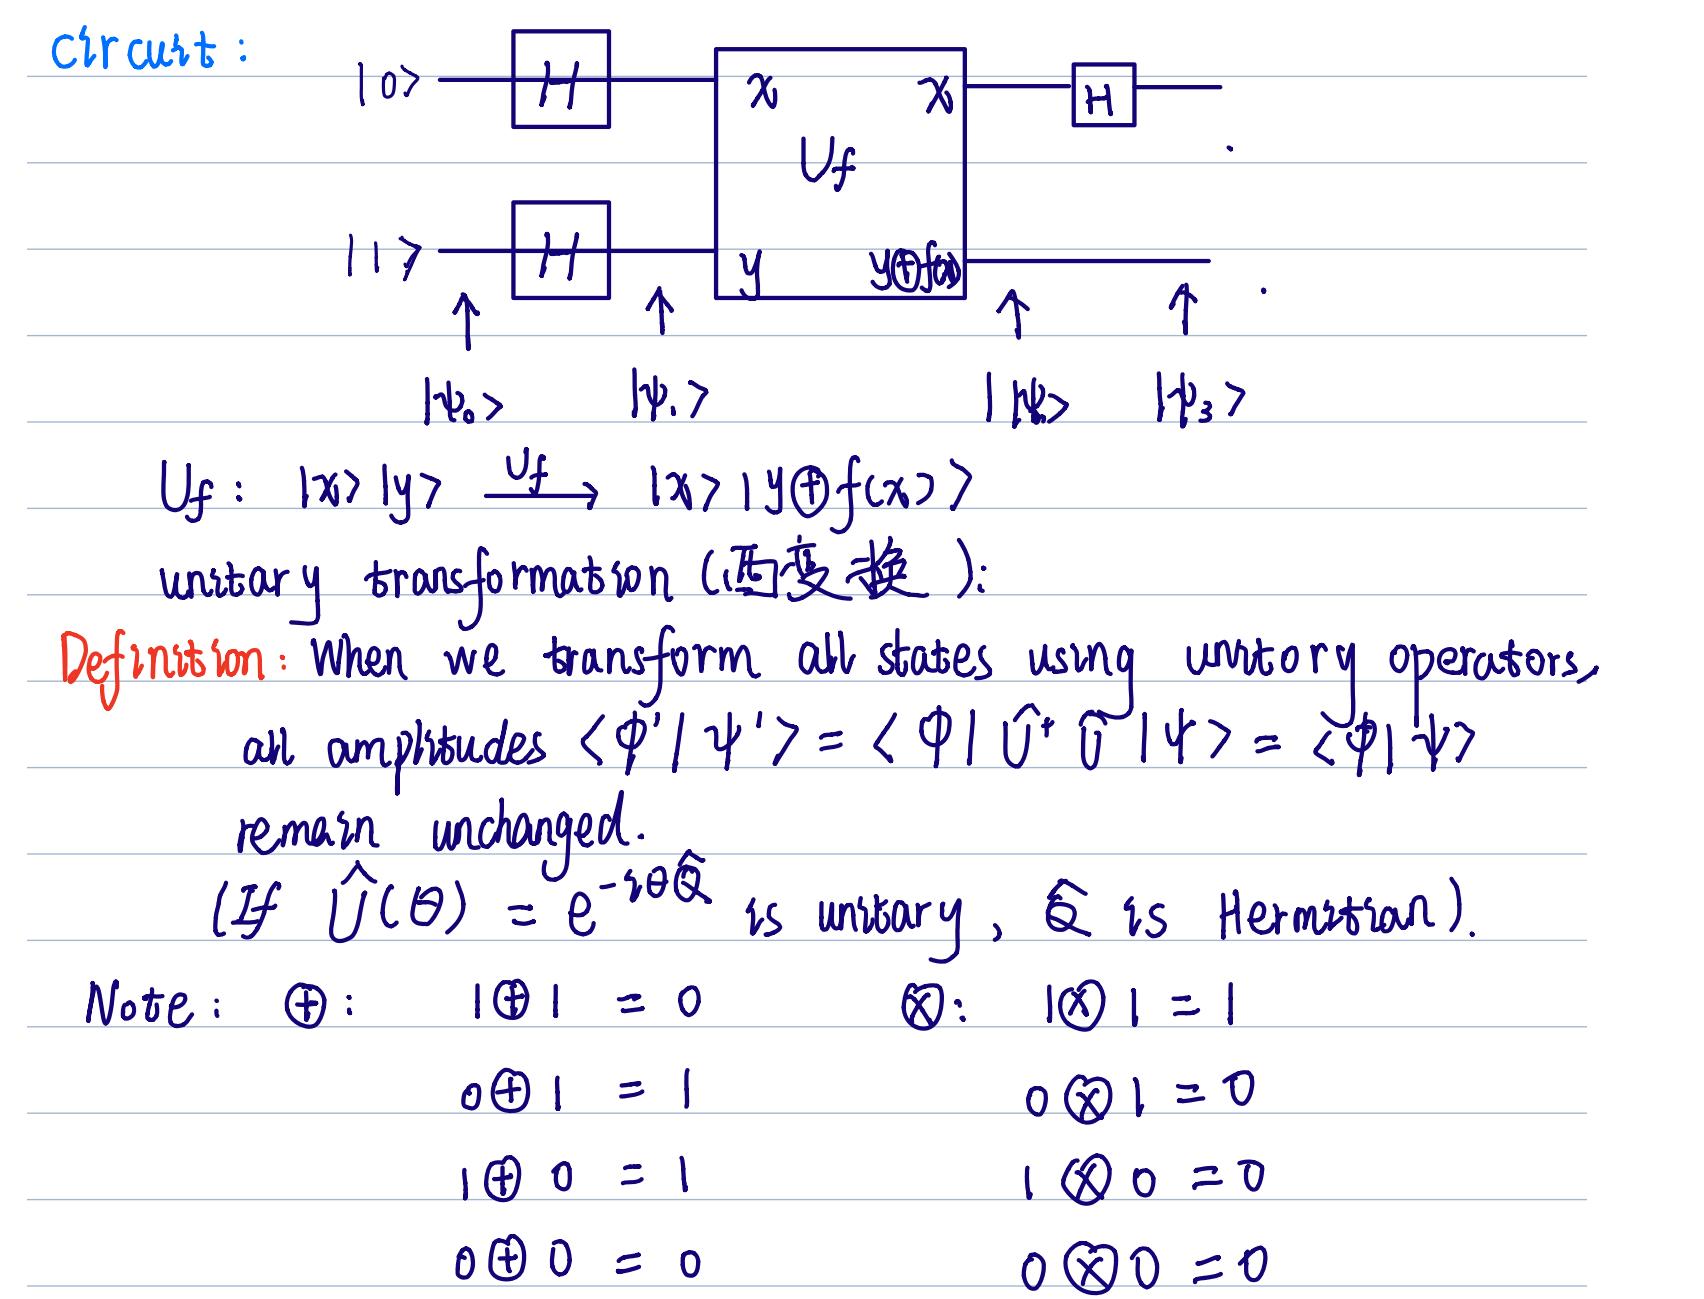 Circuit:
|0> H x x H
U_f
|1> H y y⊕f(x)
|ψ₀> |ψ₁> |ψ₂> |ψ₃>
U_f: |x>|y> —U_f→ |x>|y⊕f(x)>
unitary transformation (酉变换):
Definition: When we transform all states using unitory operators,
all amplitudes <Φ'|ψ'> = <Φ|Û⁺Û|ψ> = <Φ|ψ>
remain unchanged.
(If Û(θ) = e^{-iθQ̂} is unitary, Q̂ is Hermitian).
Note: ⊕: 1⊕1 = 0 ⊗: 1⊗1 = 1
0⊕1 = 1 0⊗1 = 0
1⊕0 = 1 1⊗0 = 0
0⊕0 = 0 0⊗0 = 0